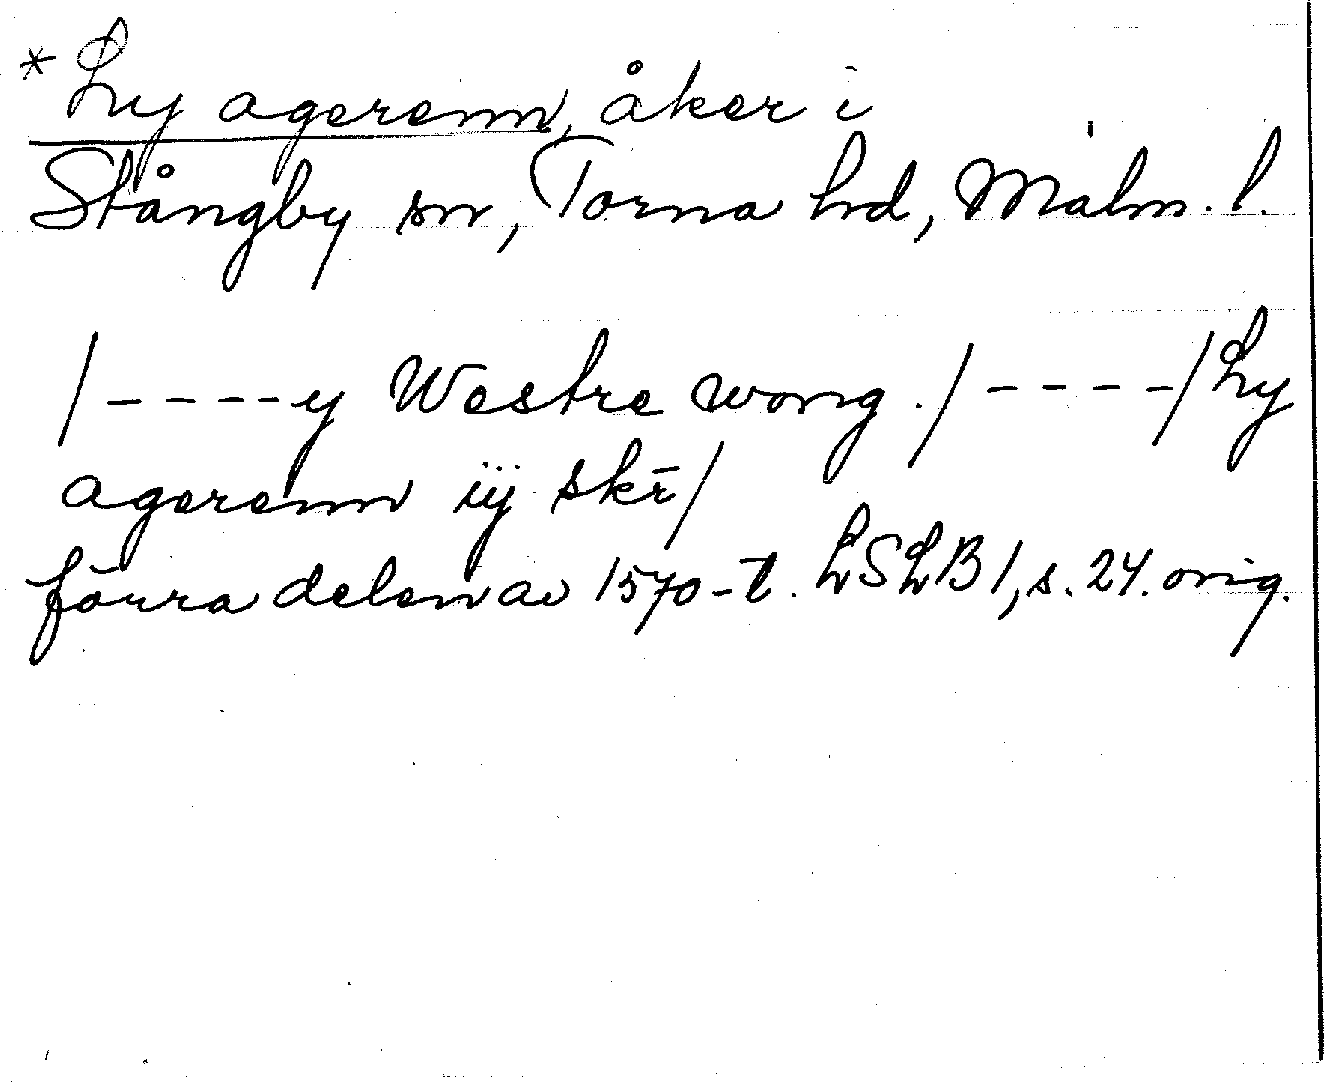 * Ly agerenn, åker i
Stångby sn, Torna hd, Malm. l.
/----y Westre wong./----/Ly
agerenn iij skr̄/
förra delen av 1570-t. LSLB 1, s. 24. orig.